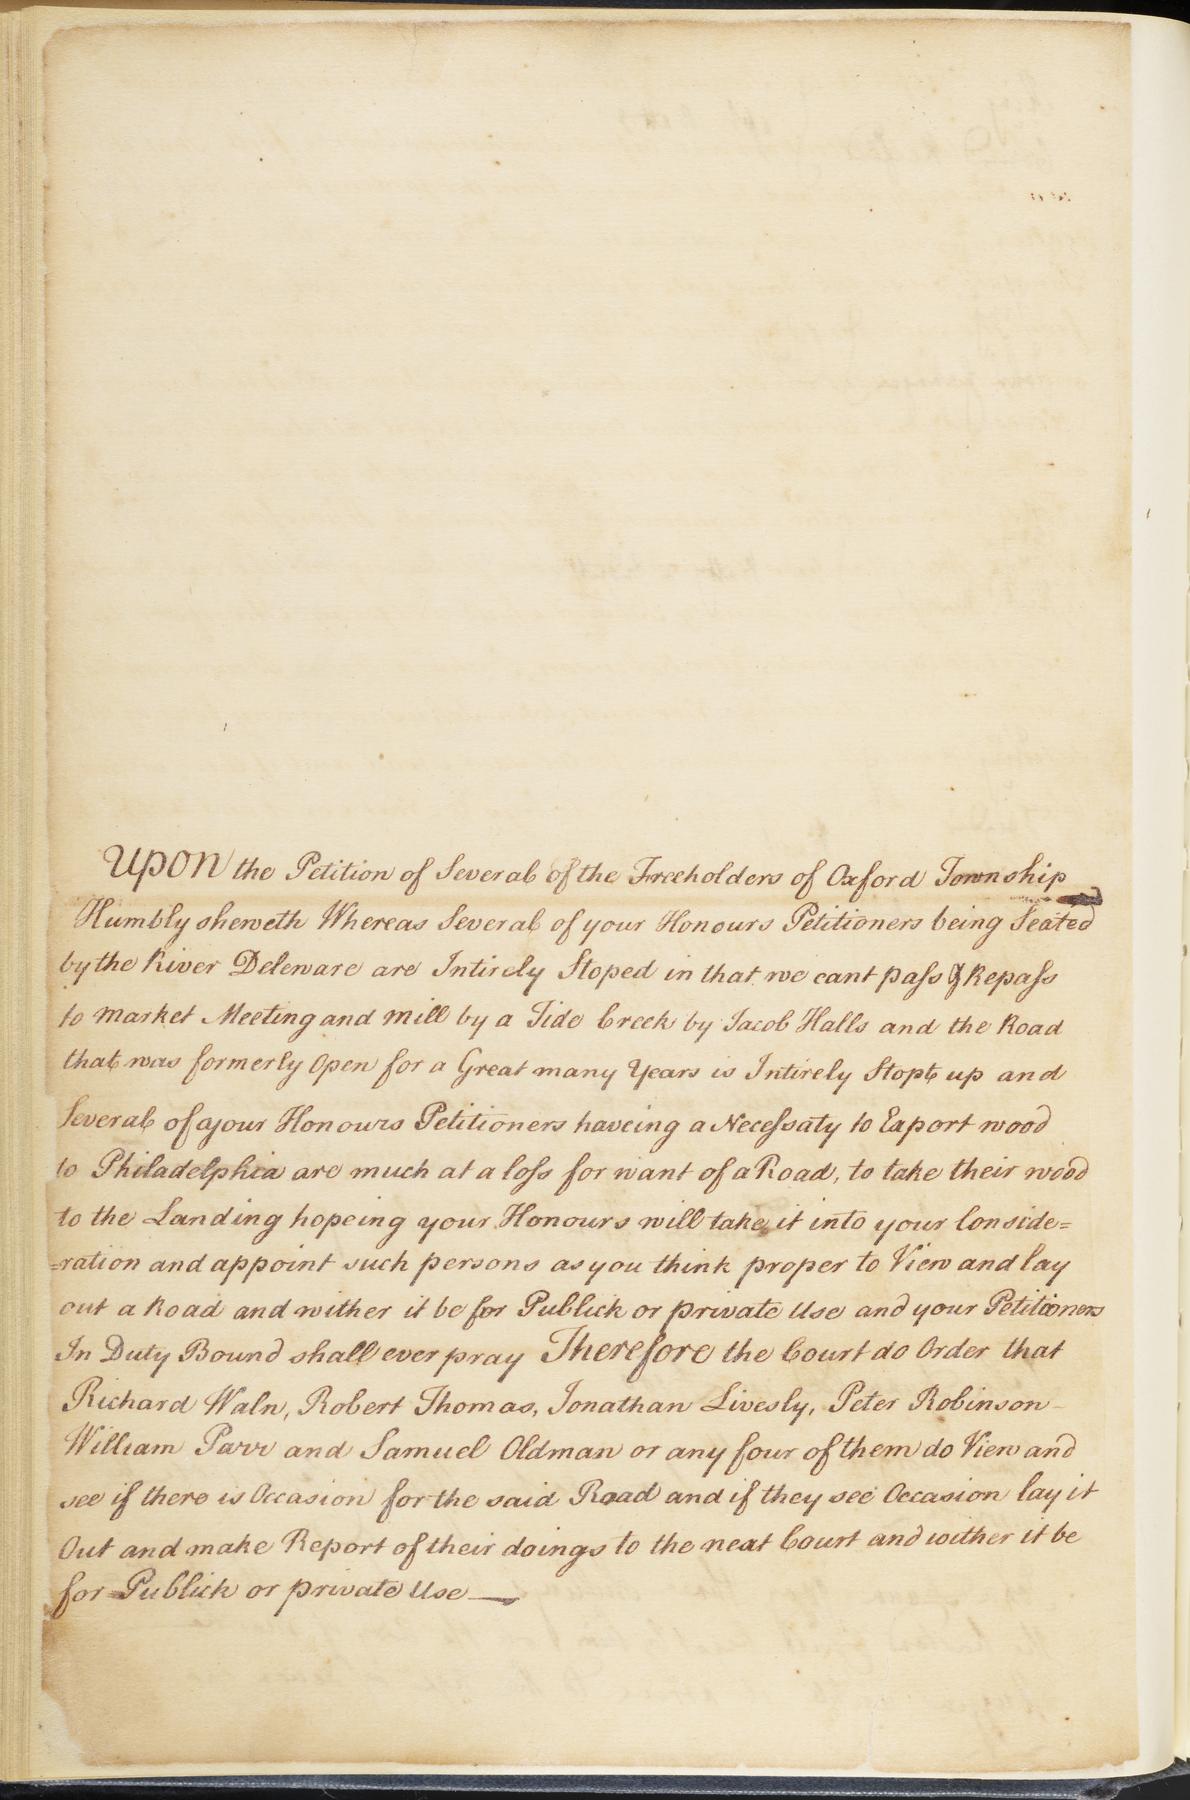 Upon the Petition of Several of the Freeholders of Oxford Township
Humbly sheweth Whereas Several of your Honours Petitioners being Seated
by the River Deleware are Intirely Stoped in that we cant pass & Repass
to market Meeting and mill by a Tide Creek by Jacob Halls and the Road
that was formerly Open for a Great many Years is Intirely Stopt up and
Several of your Honours Petitioners haveing a Necessaty to Export wood
to Philadelphia are much at a loss for want of a Road, to take their wood
to the Landing hopeing your Honours will take it into your Conside=
=ration and appoint such persons as you think proper to View and lay
out a Road and wither it be for Publick or private Use and your Petitioners
In Duty Bound shall ever pray Therefore the Court do Order that
Richard Waln, Robert Thomas, Jonathan Livesly, Peter Robinson
William Parr and Samuel Oldman or any four of them do View and
see if there is Occasion for the said Road and if they see Occasion lay it
Out and make Report of their doings to the next Court and wither it be
for Publick or private Use —